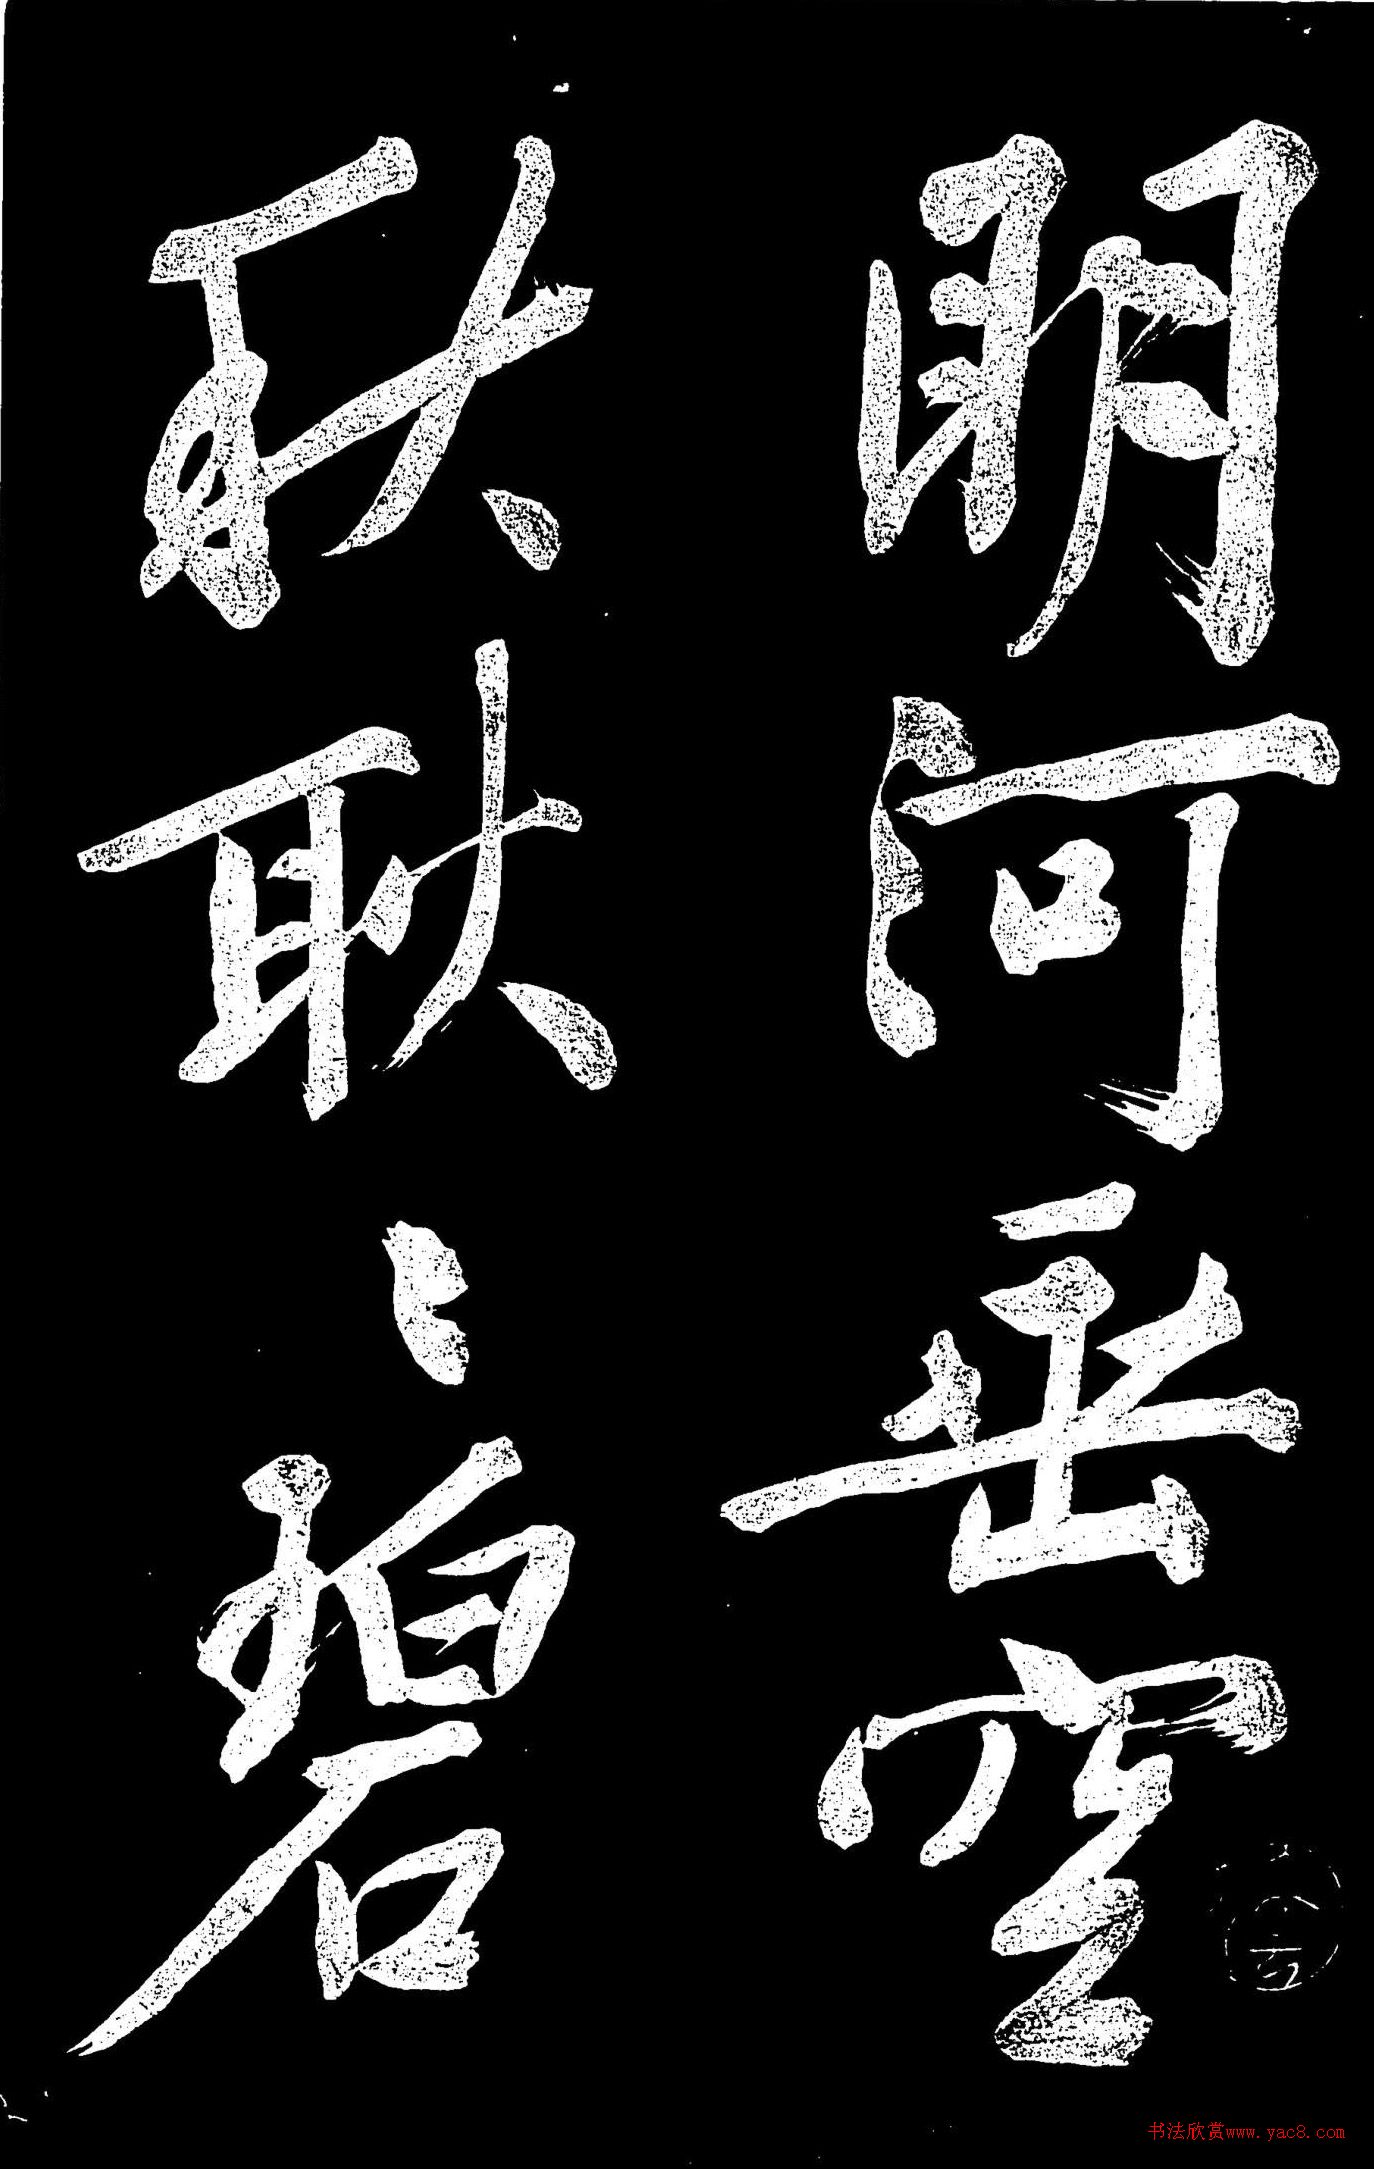 明河垂空
秋耿〻碧
书法欣赏www.yac8.com